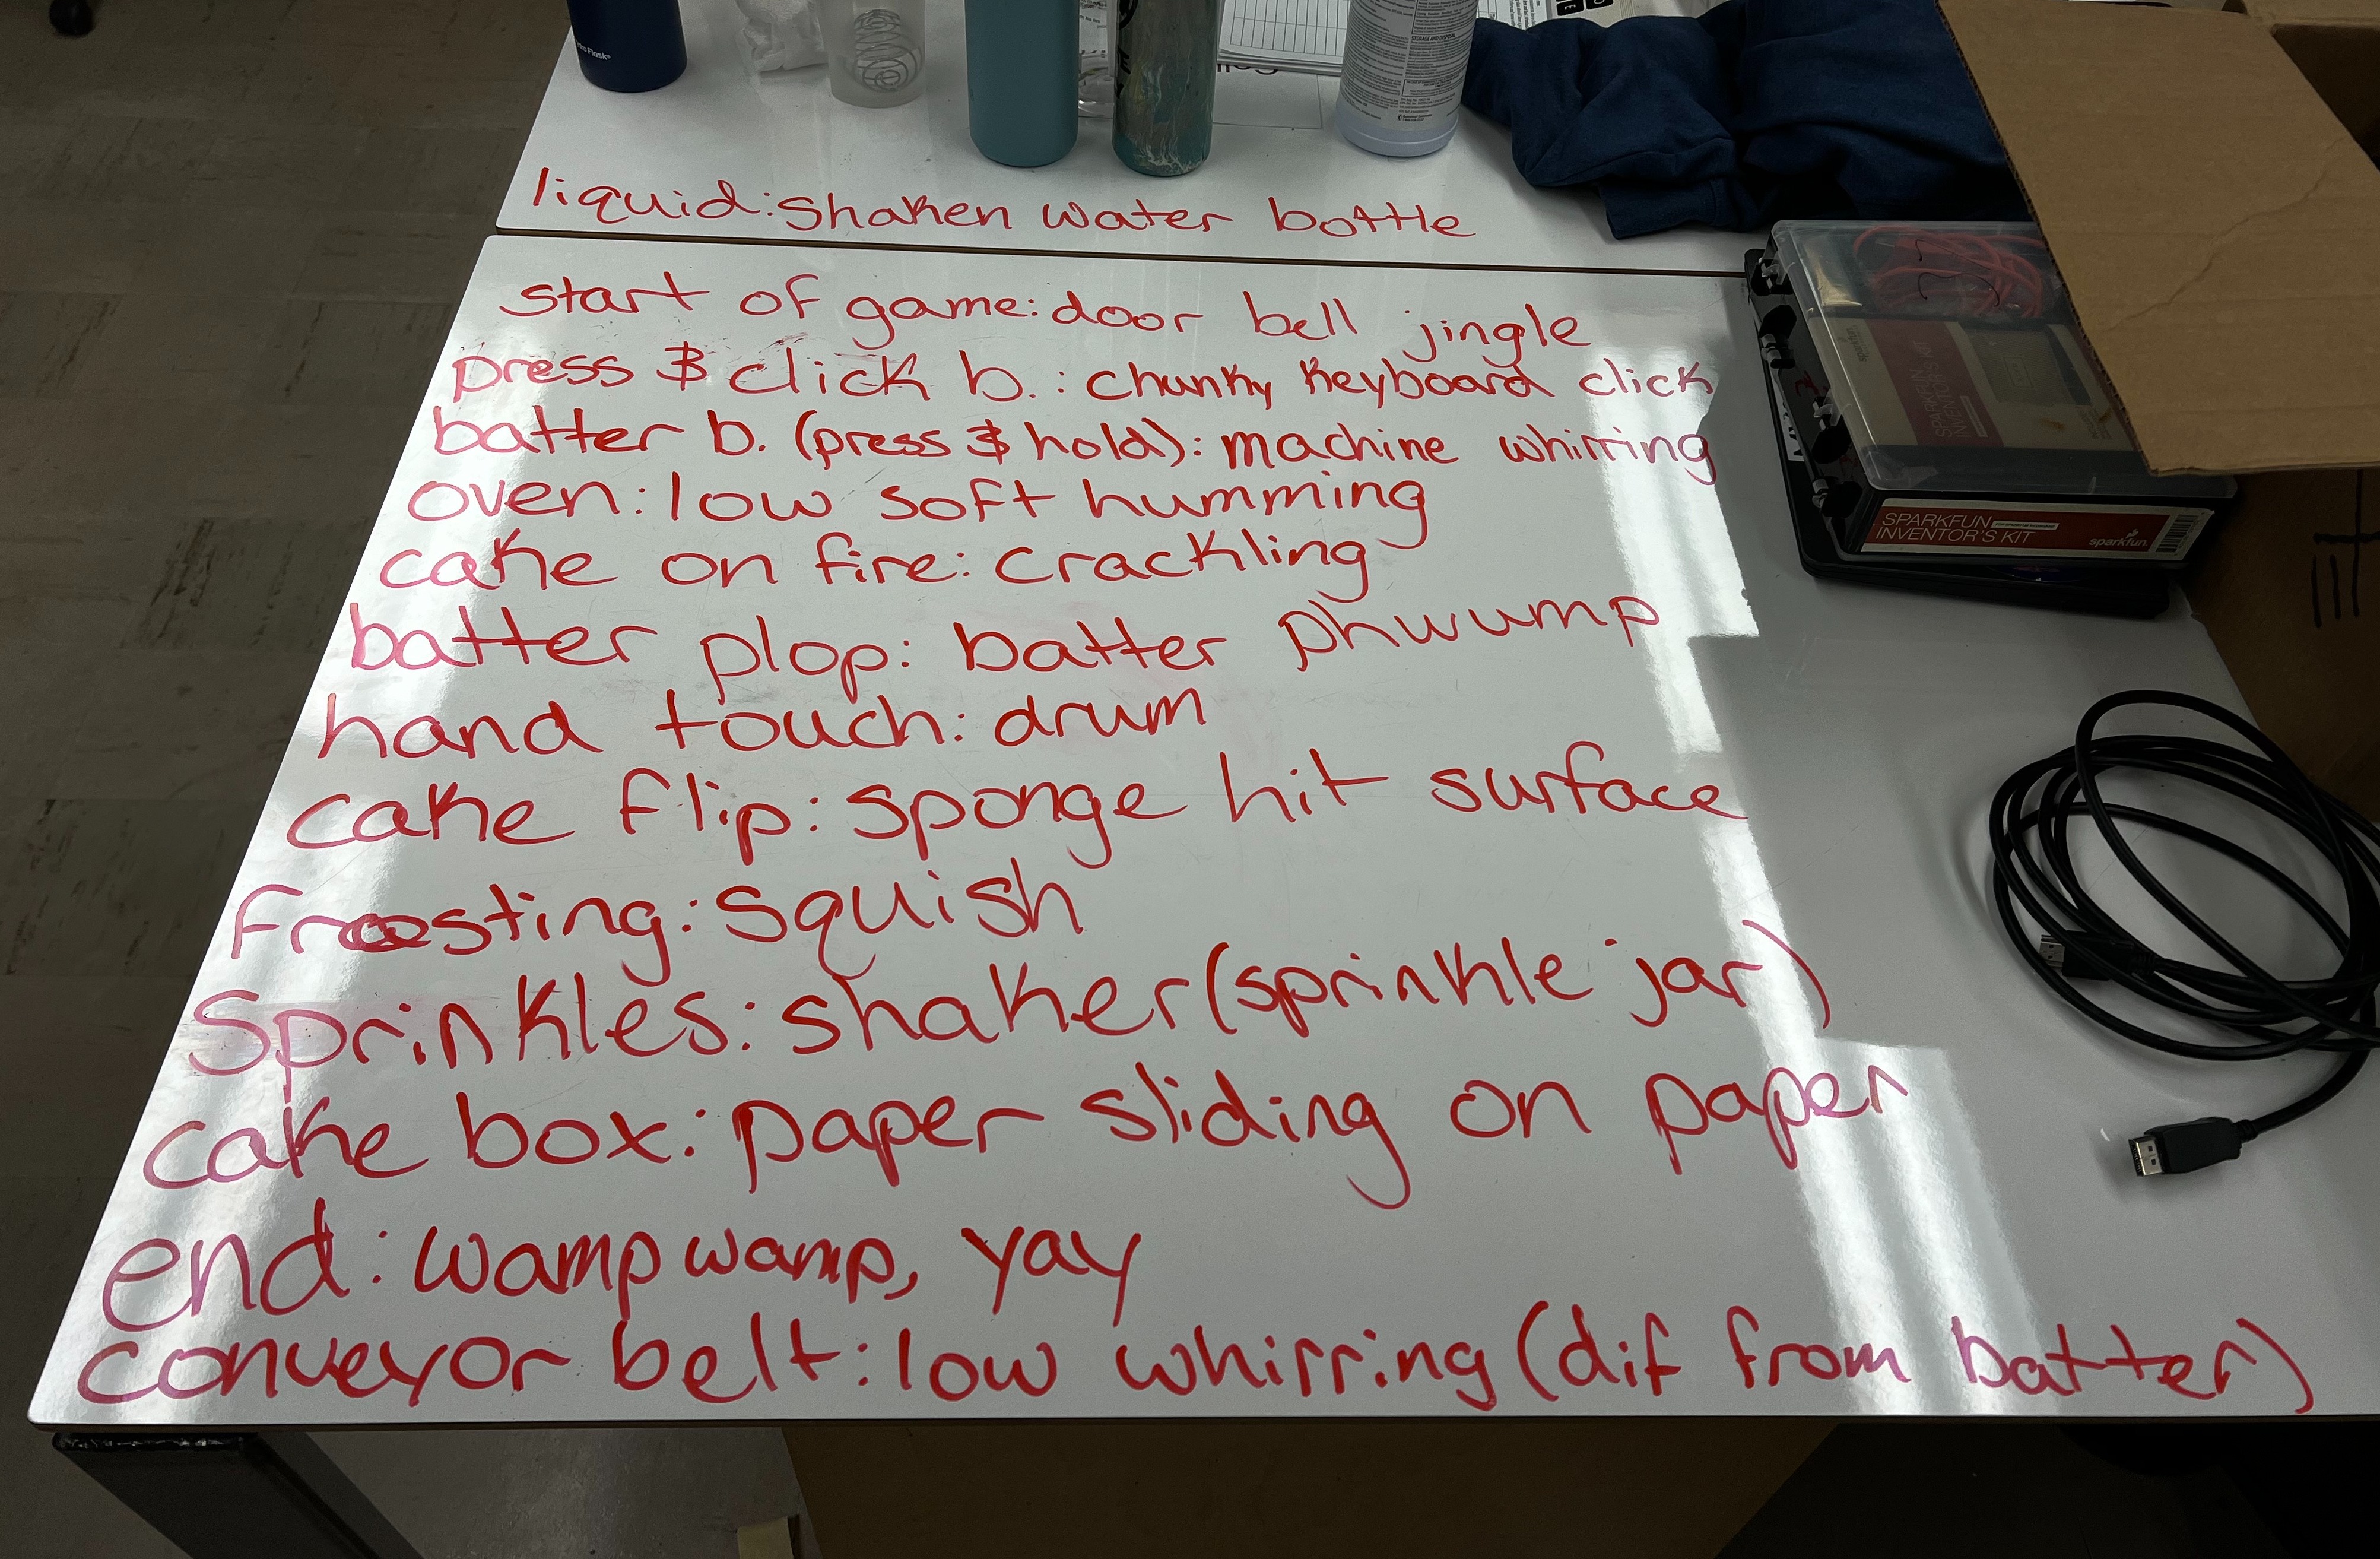 liquid: shaken water bottle
start of game: door bell jingle
press & click b.: chunky keyboard click
batter b. (press & hold): machine whirring
oven: low soft humming
cake on fire: crackling
batter plop: batter phwump
hand touch: drum
cake flip: sponge hit surface
frosting: squish
sprinkles: shaker (sprinkle jar)
cake box: paper sliding on paper
end: wamp wamp, yay
conveyor belt: low whirring (dif from batter)
SPARKFUN
INVENTOR'S KIT
sparkfun
STORAGE AND DISPOSAL